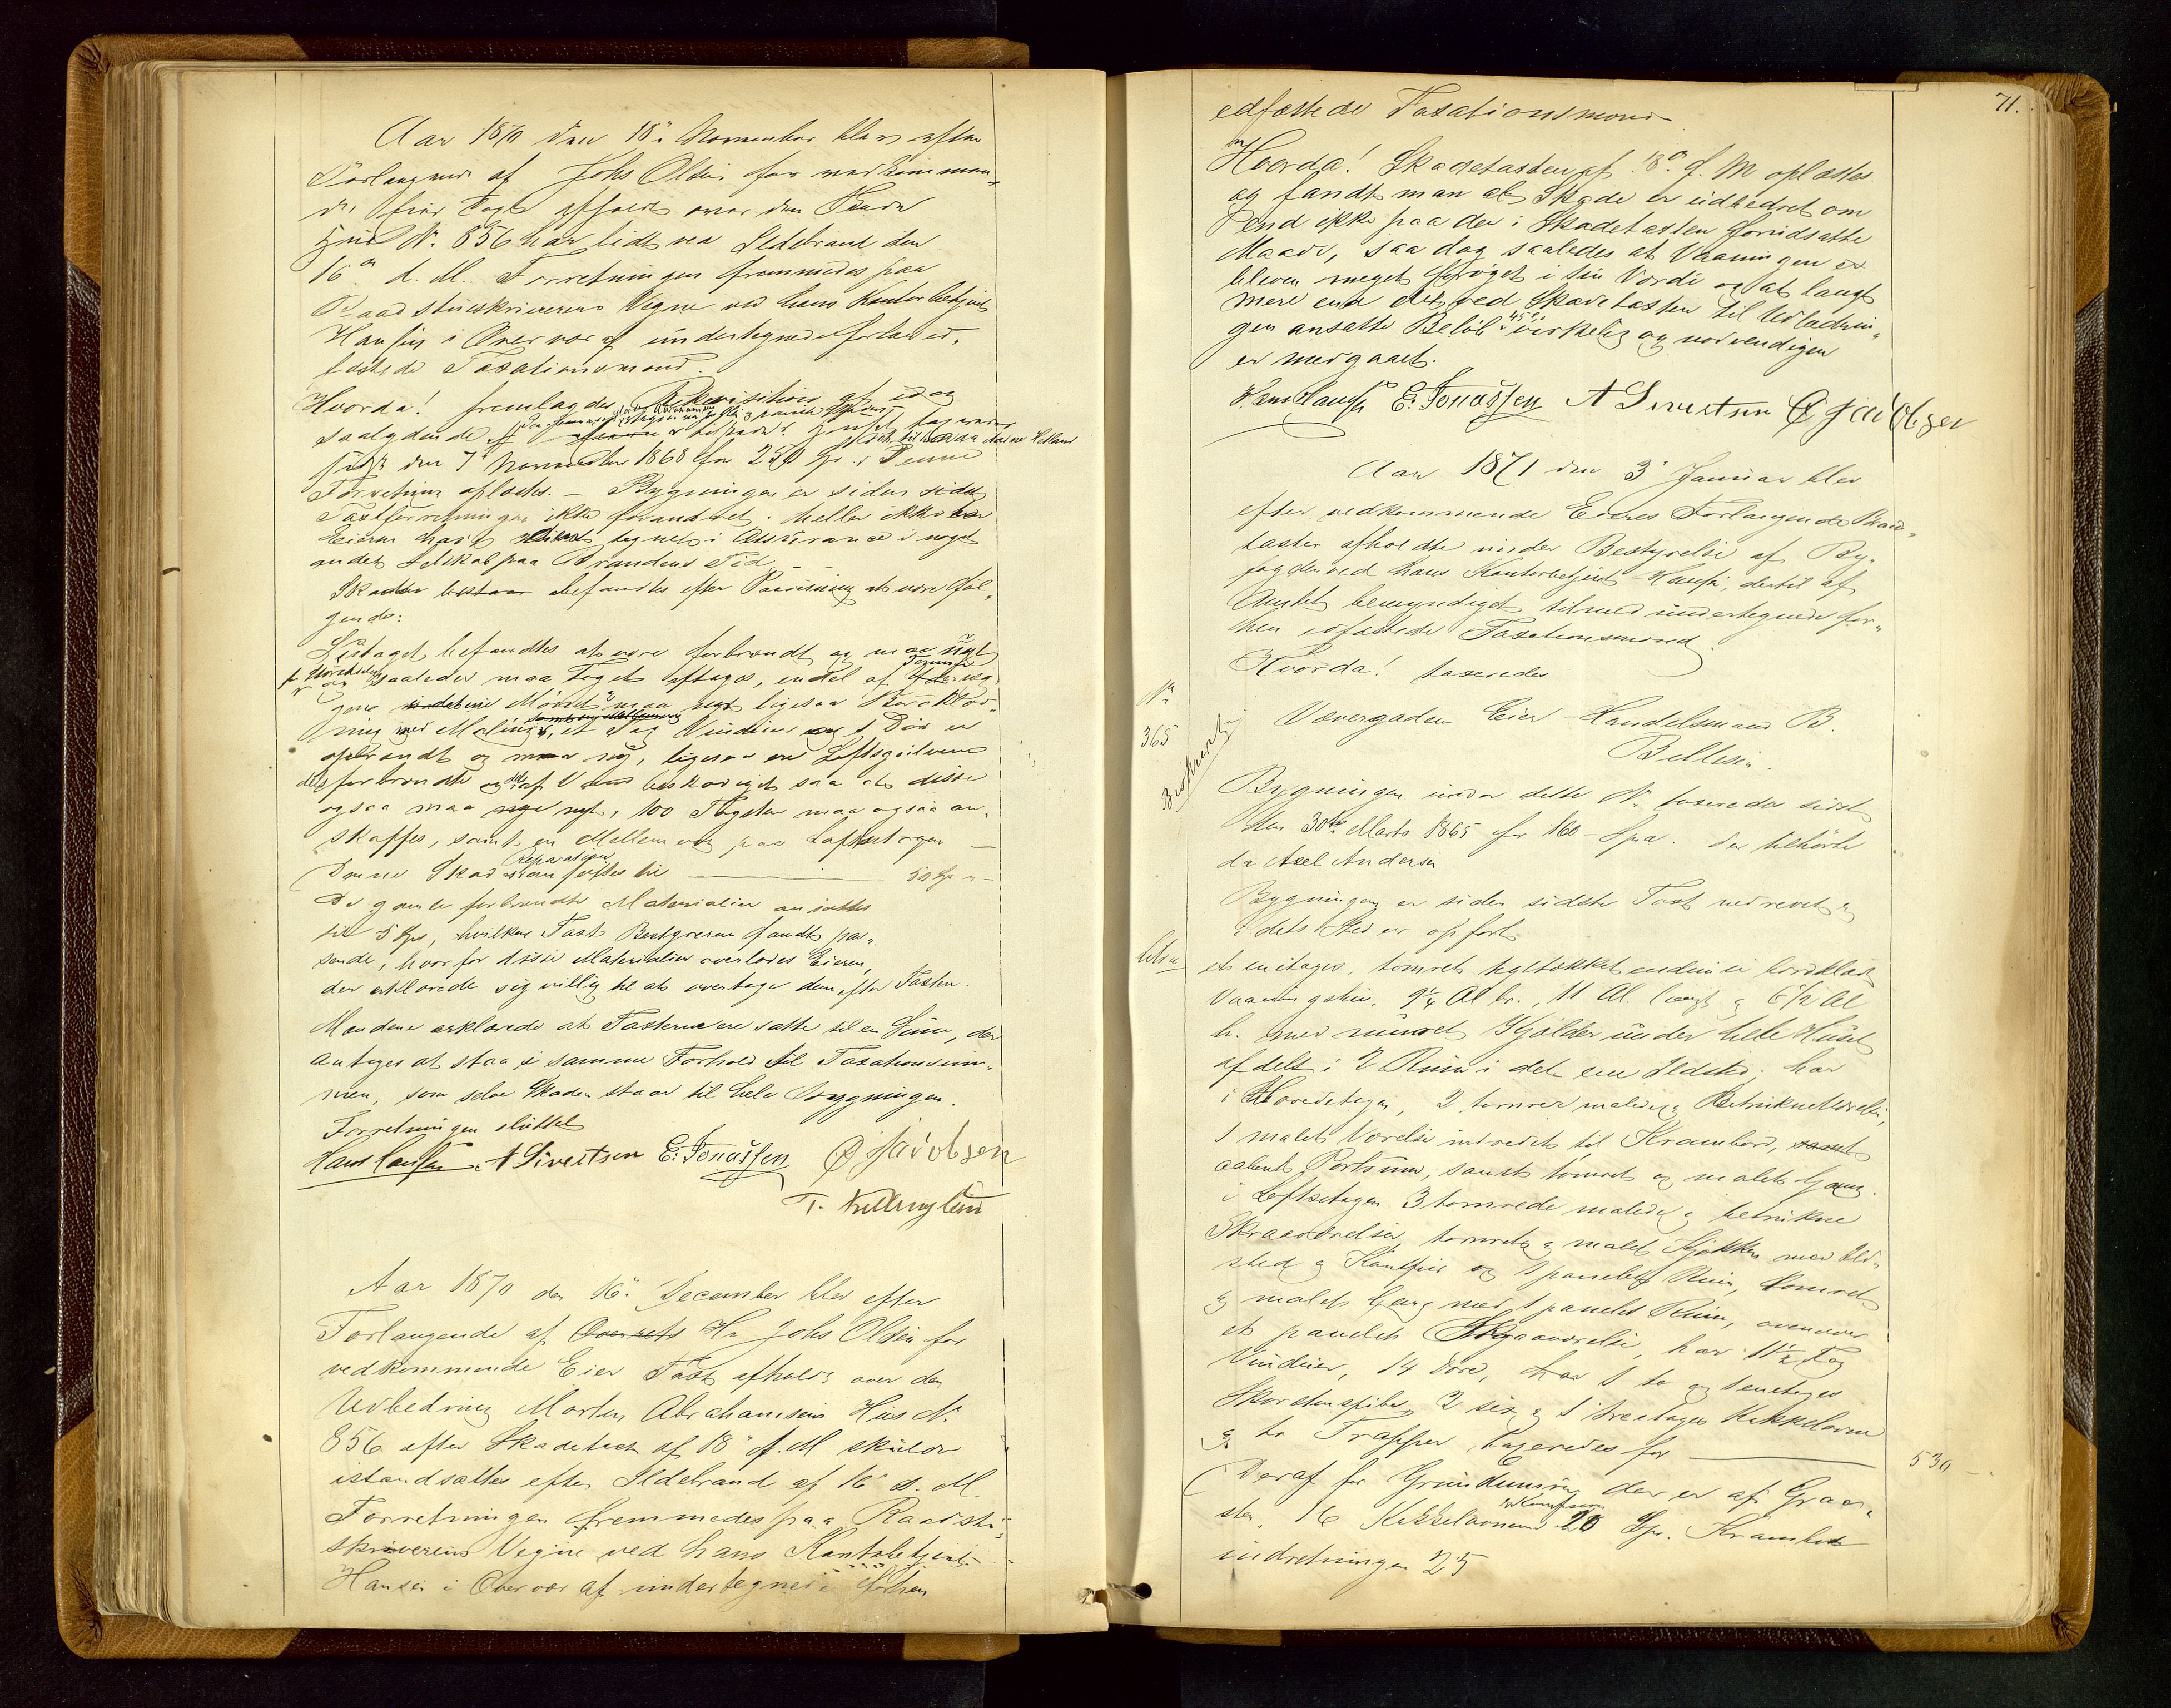 Aar 1870 den 18de November blev efter
Forlangende af Johs Olsen for vedkommen-
de Eier Taxt afholdt over den Skade
Huus No. 856 har lidt ved Ildebrand den
16de d. M. Forretningen fremmedes paa
Raadstueskriverens Vegne ved hans Kontorbetjent
Hansen i Overvær af undertegnede forhen ed-
fæstede Taxationsmænd.
Hvorda! fremlagdes Rekvisition af idag
saalydende
sidst den 7de November 1868 for 250 Spd. Denne
Forretning oplæstes. – Bygningen er siden sidste
Taxtforretningen ikke forandret. Heller ikke har
Eieren havt tegnet i Assurance i noget
andet Selskab paa Brandens Tid.
Skaden bestaar befandtes efter Paavisning at være føl-
gende:
Lystaget befandtes at være forbrændt og maa nyt
saaledes maa Taget aftages, endel af
maa ligesaa Bordklæd-
ning med Maling, et Fag Vinduer og 1 Dør er
opbrændt og maa nye, ligesaa ere Loftsgulvene
dels forbrændte og dels af Vand beskadiget saa at disse
ogsaa maa nye, 100 Tagsten maa ogsaa an-
skaffes, samt en Mellemvæg paa Loftsetagen
Denne Skades Reparation ansættes til 50 Spd –
De gamle forbrændte Materialier ansættes
til 5 Spd, hvilken Taxt Bestyreren fandt pas-
sende, hvorfor disse Materialier overlodes Eieren,
der erklærede sig villig til at overtage dem efter Taxten.
Mændene erklærede at Taxterne ere satte til en Sum, der
antages at staa i samme Forhold til Taxationssum-
men, som selve Skaden staar til hele Bygningen.
Forretningen sluttet
Hans Hansen A Sivertsen E. Jonassen Ø Jacobsen
T. Kellengren
Aar 1870 den 16de December blev efter
Forlangende af Overrets Hr Johs Olsen for
vedkommende Eier Taxt afholdt over den
Udbedring Morten Abrahamsens Huus No.
856 efter Skadetaxt af 18de f. M skulde
istandsættes efter Ildebrand af 16 s. M.
Forretningen fremmedes paa Raadstu-
skriverens Vegne ved hans Kontorbetjent
Hansen i Overvær af undertegnede forhen
71.
edfæstede Taxationsmænd
Hvorda! Skadetaxten af 18de f. M oplæstes
og fandt man at Skade er udbedret om
end ikke paa den i Skadetaxten forudsatte
Maade, saa dog saaledes at Vaaningen er
bleven meget forøget i sin Værdi og at langt
mere end det ved Skadetaxten til Udbedrin-
gen ansatte Beløb 45 Spd virkelig og nødvendigen
er medgaaet.
Hans Hansen E. Jonassen A Sivertsen Ø Jacobsen
Aar 1871 den 3de Januar blev
efter vedkommende Eieres Forlangende Brand-
taxter afholdte under Bestyrelse af By-
fogden ved hans Kontorbetjent Hansen, dertil af
Amtet bemyndiget tilmed undertegnede for-
hen edfæstede Taxationsmænd.
Hvorda! taxeredes
No
365
Beskrevet
Vævergaden Eier Handelsmand B.
Bellesen.
Bygningen under dette No. taxeredes sidst
den 30te Marts 1865 for 160 – Spd. den tilhørte
da Axel Andersen
Bygningen er siden sidste Taxt nedrevet og
i dets Sted er opført
Litr a
et enetages, tømret tegltækket udvendig bordklædt
Vaaningshus, 9 1/4 Al br., 11 Al. langt og 6 1/2 Al
h. med muuret Kjælder under hele Huset
afdelt i 2 Rum i det ene Ildsted; har
i Hovedetagen, 2 tømrede malede og Betrukne Værelser,
1 malet Værelse indredet til Krambod, samt
aabent Portrum, samt tømret og malet Gang.
i Loftsetagen 3 tømrede malede og betrukne
Skraaværelser, tømret og malet Kjøkken med Ild-
sted og Komfur og 1 panelet Rum, tømret
og malet Gang med 1 panelet Rum, ovenover
et panelet Skraaværelse, har 11 1/2 Fag
Vinduer, 14 Døre, har 1 to og 1 enetages
Skorstenspiber 2 six og 1 treetages Kakkelovne
og to Trapper, taxeredes for 530 –
(Deraf for Grundmuren der er af Graa-
sten, 16 Kakkelovnene & Komfuren 20 Spd. Krambod
indretningen 25